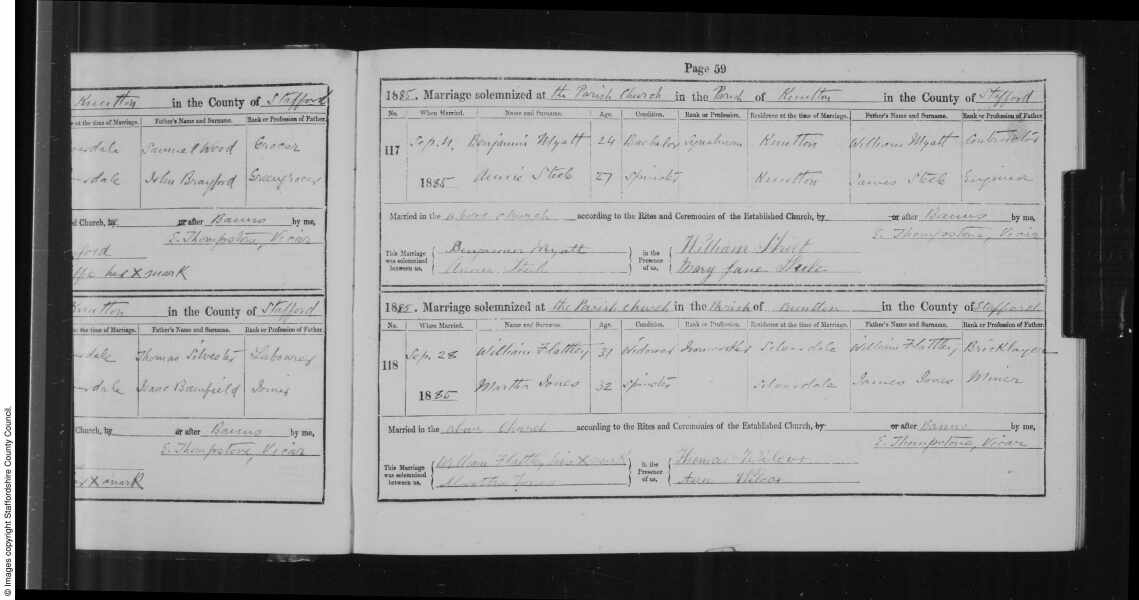 Knutton in the County of Stafford
at the time of Marriage. Father's Name and Surname. Rank or Profession of Father.
Samuel Wood Grocer
John Brayford Greengrocer
Church, by or after Banns by me,
E. Thompstone, Vicar
his X mark
Knutton in the County of Stafford
at the time of Marriage. Father's Name and Surname. Rank or Profession of Father.
Thomas Silvester Labourer
Isaac Bamfield Joiner
Church, by or after Banns by me,
E. Thompstone, Vicar
X mark
Page 59
1885. Marriage solemnized at the Parish Church in the Parish of Knutton in the County of Stafford
No. When Married. Name and Surname. Age. Condition. Rank or Profession. Residence at the time of Marriage. Father's Name and Surname. Rank or Profession of Father.
117 Sep. Benjamin Myatt 24 Bachelor Knutton William Myatt Contractor
1885 Annie Steele 27 Spinster Knutton James Steele Engineer
Married in the above Church according to the Rites and Ceremonies of the Established Church, by or after Banns
E. Thompstone, Vicar
This Marriage was solemnized between us, Benjamin Myatt in the Presence of us, William
Annie Steele Mary Jane Steele
1885. Marriage solemnized at the Parish Church in the Parish of Knutton in the County of Stafford
No. When Married. Name and Surname. Age. Condition. Rank or Profession. Residence at the time of Marriage. Father's Name and Surname. Rank or Profession of Father.
118 Sep. 28 William Flattley 31 Widower Ironworker Silverdale William Flattley Bricklayer
1885 Martha Jones 32 Spinster Silverdale James Jones Miner
Married in the above Church according to the Rites and Ceremonies of the Established Church, by or after Banns
E. Thompstone, Vicar
This Marriage was solemnized between us, William Flattley his X mark in the Presence of us, Thomas Wilcox
Martha Jones Ann Wilcox
© Images copyright Staffordshire County Council.